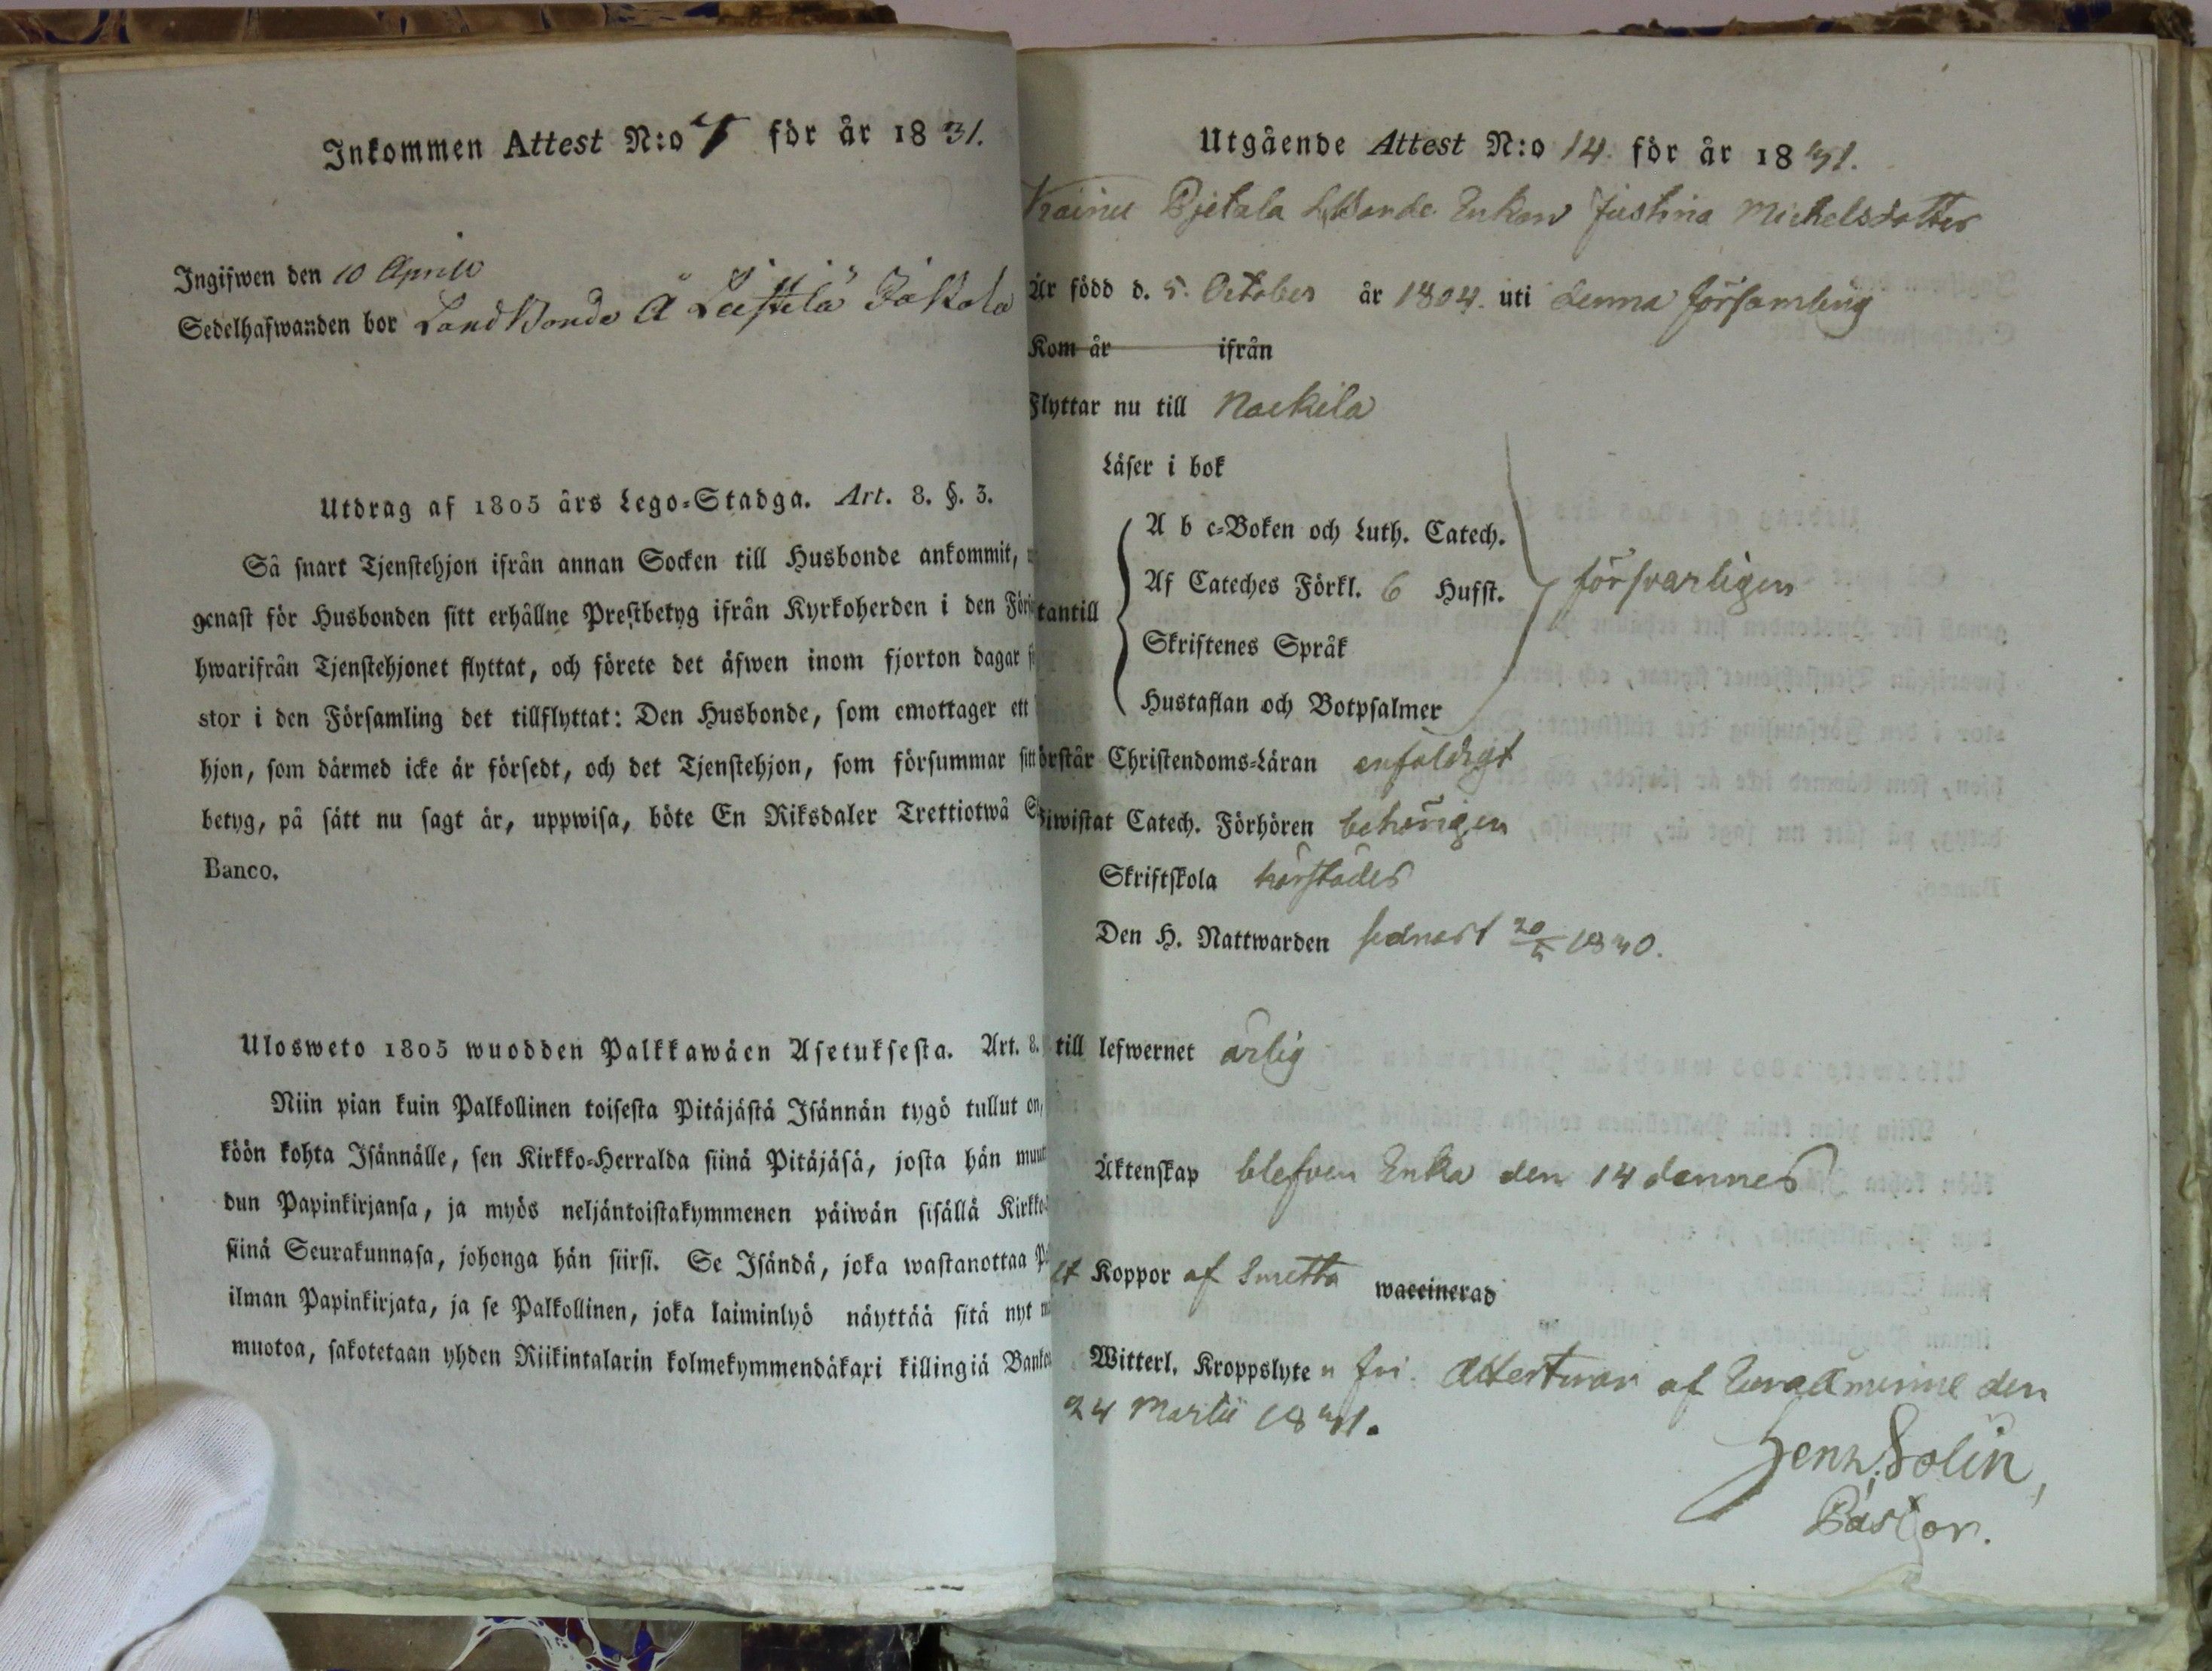 Inkommen Attest N:o 7 för år 1831.
Ingifwen den 10 April
Sedelhafwanden bor Landbonde å Leistilä Jakola
Utdrag af 1805 års Lego-Stadga. Art. 8. §. 3.
Så snart Tjenstehjon ifrån annan Socken till Husbonde ankommit,
genast för Husbonden sitt erhållne Prestbetyg ifrån Kyrkoherden i den För
hwarifrån Tjenstehjonet flyttat, och förete det äfwen inom fjorton dagar
stor i den Församling det tillflyttat: Den Husbonde, som emottager ett
hjon, som därmed icke är försedt, och det Tjenstehjon, som försummar sitt
betyg, på sätt nu sagt är, uppwisa, böte En Riksdaler Trettiotwå
Banco.
Ulosweto 1805 wuodden Palkkawäen Asetuksesta. Art. 8.
Niin pian kuin Palkollinen toisesta Pitäjästä Isännän tygö tullut on,
köön kohta Isännälle, sen Kirkko-Herralda siinä Pitäjäsä, josta hän muut
dun Papinkirjansa, ja myös neljäntoistakymmenen päiwän sisällä Kirkko
siinä Seurakunnasa, johonga hän siirsi. Se Isändä, joka wastanottaa
ilman Papinkirjata, ja se Palkollinen, joka laiminlyö näyttää sitä nyt
muotoa, sakotetaan yhden Riikintalarin kolmekymmendäkaxi killingiä Banko
Utgående Attest N:o 14 för år 1831.
Pjetala Enkan Justina Michelsdotter
Är född d. 5. October år 1804. uti denna församling
Kom år ifrån
Flyttar nu till Nackila
Läser i bok
A b c-Boken och Luth. Catech.
Af Cateches Förkl. 6 Hufst. försvarligen
tantill
Skriftenes Språk
Hustaflan och Botpsalmer
örstår Christendoms-Läran enfaldigt
iwistat Catech. Förhören behörigen
Skriftskola härstädes
Den H. Nattwarden sednast 1830.
till lefwernet ärlig
Äktenskap blefven Enka den 14 dennes
Koppor af Smetta waccinerad
Witterl. Kroppslyte n fri. Attesterar af Euraåminne den
24 Martii 1831.
Henr. Solin,
Pastor.